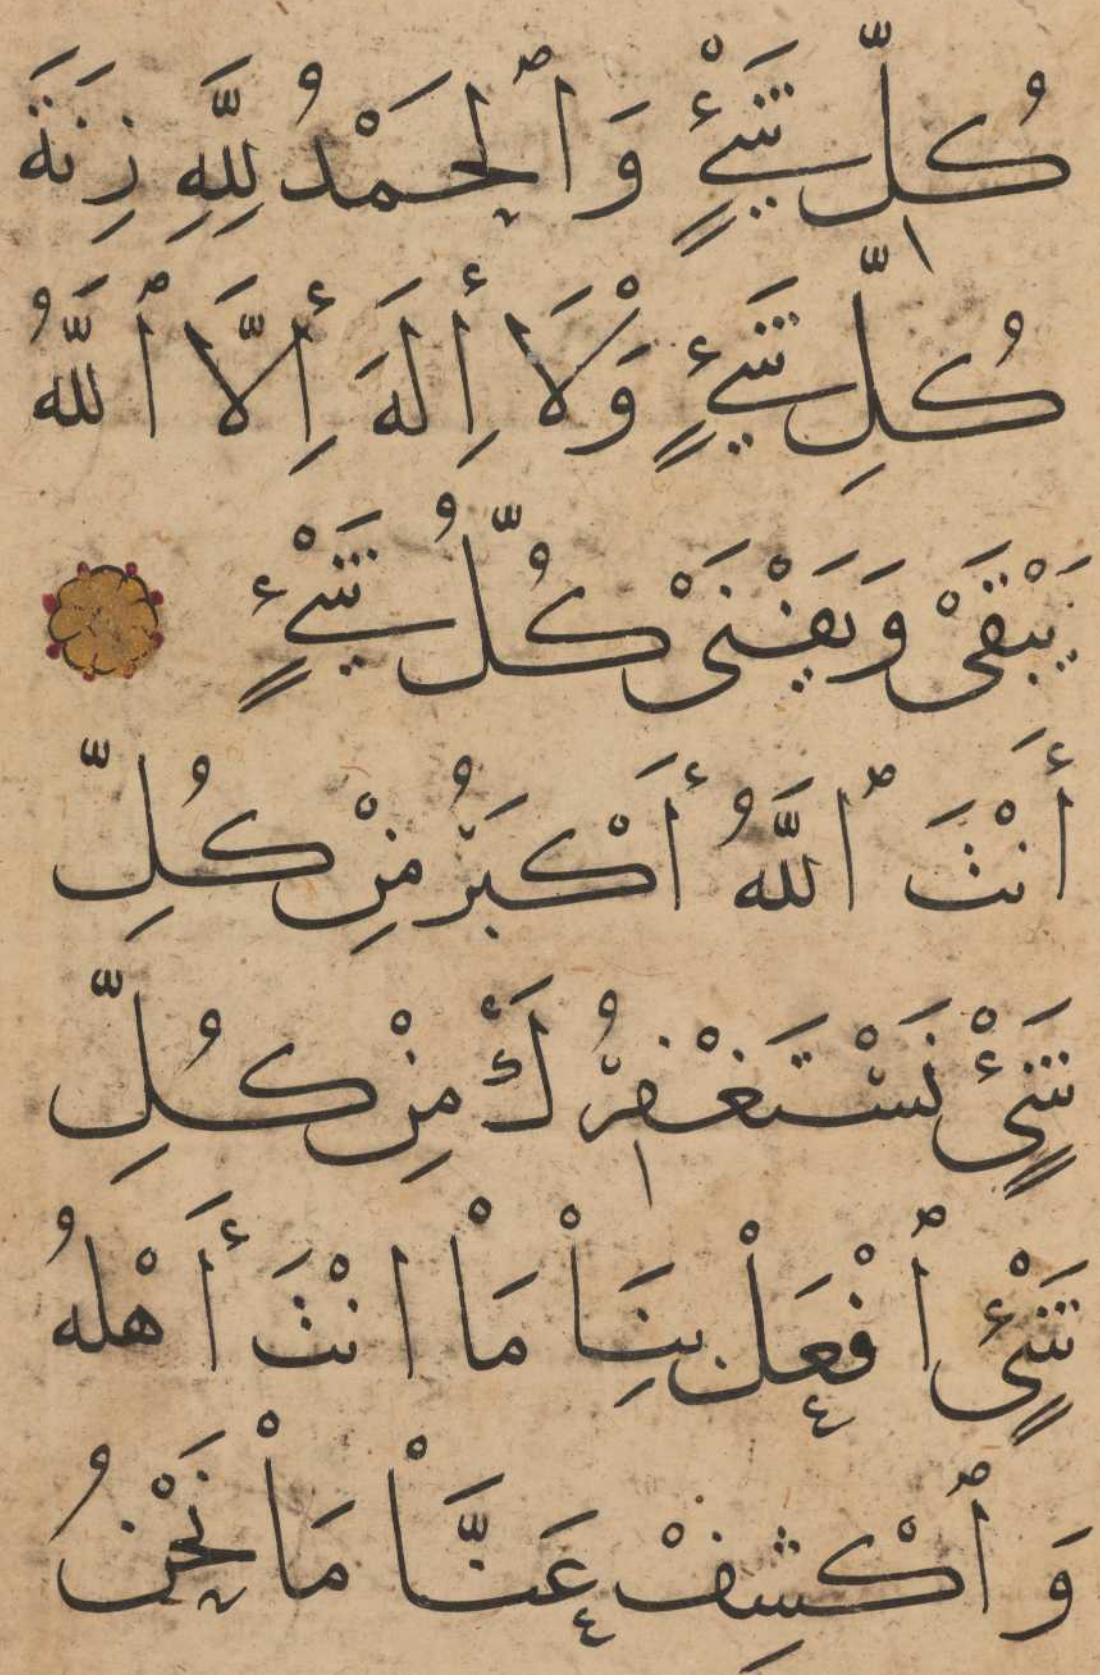 كُلِّ شَيْءٍ وَٱلْحَمْدُ لِلَّهِ زِنَةَ
كُلِّ شَيْءٍ وَلَا أِلَهَ أِلَّا ٱللَّهُ
يَبْقَىْ وَيَفْنَىْ كُلُّ شَيْءٍ
أَنْتَ ٱللَّهُ أَكْبَرُ مِنْ كُلِّ
شَيْءٍ نَسْتَغْفِرُكَ مِنْ كُلِّ
شَيْءٍ ٱفْعَلْ بِنَاْ مَاْ انْتَ أَهْلهُ
وَٱكْشِفْ عَنَّاْ مَاْ نَحْنُ